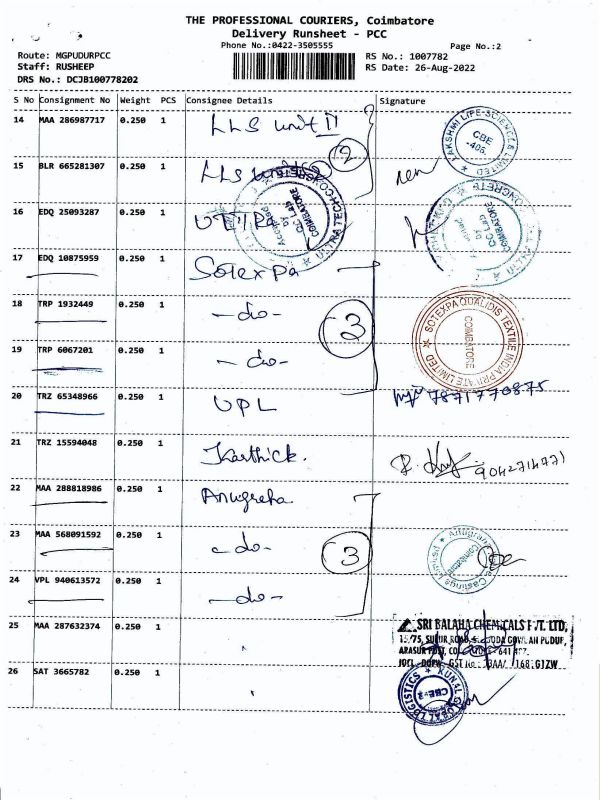 THE PROFESSIONAL COURIERS, Coimbatore
Delivery Runsheet - PCC
Phone No.:0422-3505555
Page No.:2
Route: MGPUDURPCC
Staff: RUSHEEP
DRS No.: DCJB100778202
RS No.: 1007782
RS Date: 26-Aug-2022
S No Consignment No Weight PCS Consignee Details Signature
14 MAA 286987717 0.250 1 LLS unit II
LAKSHMI LIFE SCIENCES LIMITED
CBE
-406.
15 BLR 665281307 0.250 1 LLS unit
2
16 EDQ 25093287 0.250 1
ULTRA TECH CONCRETE
QC Lab
COIMBATORE
17 EDQ 10875959 0.250 1 Sotexpa
18 TRP 1932449 0.250 1 -do-
3
SOTEXPA QUALIDIS TEXTILE INDIA PRIVATE LIMITED
COIMBATORE
19 TRP 6067201 0.250 1 -do-
20 TRZ 65348966 0.250 1 UPL
7871770875
21 TRZ 15594048 0.250 1 Karthick.
22 MAA 288818986 0.250 1 Anugreha
23 MAA 568091592 0.250 1 -do-
3
Castings Limited
Coimbatore
24 VPL 940613572 0.250 1 -do-
25 MAA 287632374 0.250 1
SRI BALAHA CHEMICALS PVT. LTD.
15/75, SULUR ROAD,
ARASUR POST,
26 SAT 3665782 0.250 1
KUNAL GLOBAL LOGISTICS
CBE-2